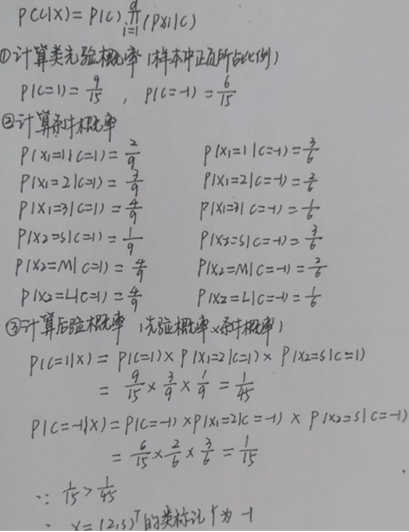 P(C|X) = P(C) ∏_{i=1}^{d} (PXi|C)
①计算类先验概率（样本中正负所占比例）
P(C=1) = 9/15 , P(C=-1) = 6/15
②计算条件概率
P(X1=1|C=1) = 2/9 P(X1=1|C=-1) = 3/6
P(X1=2|C=1) = 3/9 P(X1=2|C=-1) = 2/6
P(X1=3|C=1) = 4/9 P(X1=3|C=-1) = 1/6
P(X2=S|C=1) = 1/9 P(X2=S|C=-1) = 3/6
P(X2=M|C=1) = 4/9 P(X2=M|C=-1) = 2/6
P(X2=L|C=1) = 4/9 P(X2=L|C=-1) = 1/6
③计算后验概率（先验概率×条件概率）
P(C=1|X) = P(C=1) × P(X1=2|C=1) × P(X2=S|C=1)
= 9/15 × 3/9 × 1/9 = 1/45
P(C=-1|X) = P(C=-1) × P(X1=2|C=-1) × P(X2=S|C=-1)
= 6/15 × 2/6 × 3/6 = 1/15
∵ 1/15 > 1/45
∴ X = (2,S)ᵀ 的类标记Y为 -1